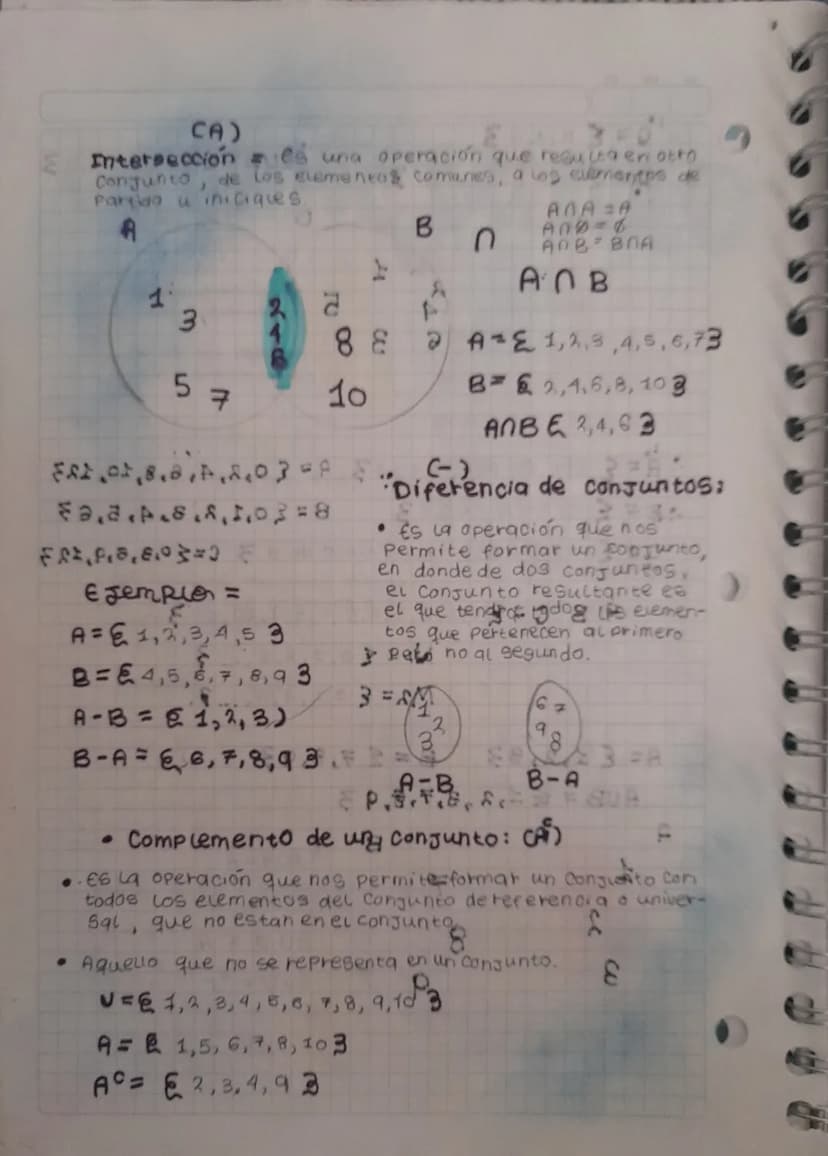 (A)
Intersección = es una operación que resulta en otro
conjunto, de los elementos comunes, a los elementos de
partida u iniciques
A
B
∩
A∩A = A
A∩Ø = Ø
A∩B = B∩A
A ∩ B
1
3
5
7
2
4
6
8
10
A = { 1,2,3,4,5,6,7}
B = { 2,4,6,8,10 }
A∩B { 2,4,6 }
(-)
Diferencia de conjuntos:
• Es la operación que nos
permite formar un conjunto,
en donde de dos conjuntos,
el conjunto resultante es
el que tendra todos los elemen-
tos que pertenecen al primero
y pero no al segundo.
Ejemplo =
A = { 1,2,3,4,5 }
B = { 4,5,6,7,8,9 }
A-B = { 1,2,3 )
B-A = { 6,7,8,9 }
1
2
3
A-B
6 7
9
8
B-A
• Complemento de un conjunto: (Aᶜ)
• Es la operación que nos permite formar un conjunto con
todos los elementos del conjunto de referencia o univer-
sal, que no estan en el conjunto.
• Aquello que no se representa en un conjunto.
U = { 1,2,3,4,5,6,7,8,9,10 }
A = { 1,5,6,7,8,10 }
Aᶜ = { 2,3,4,9 }